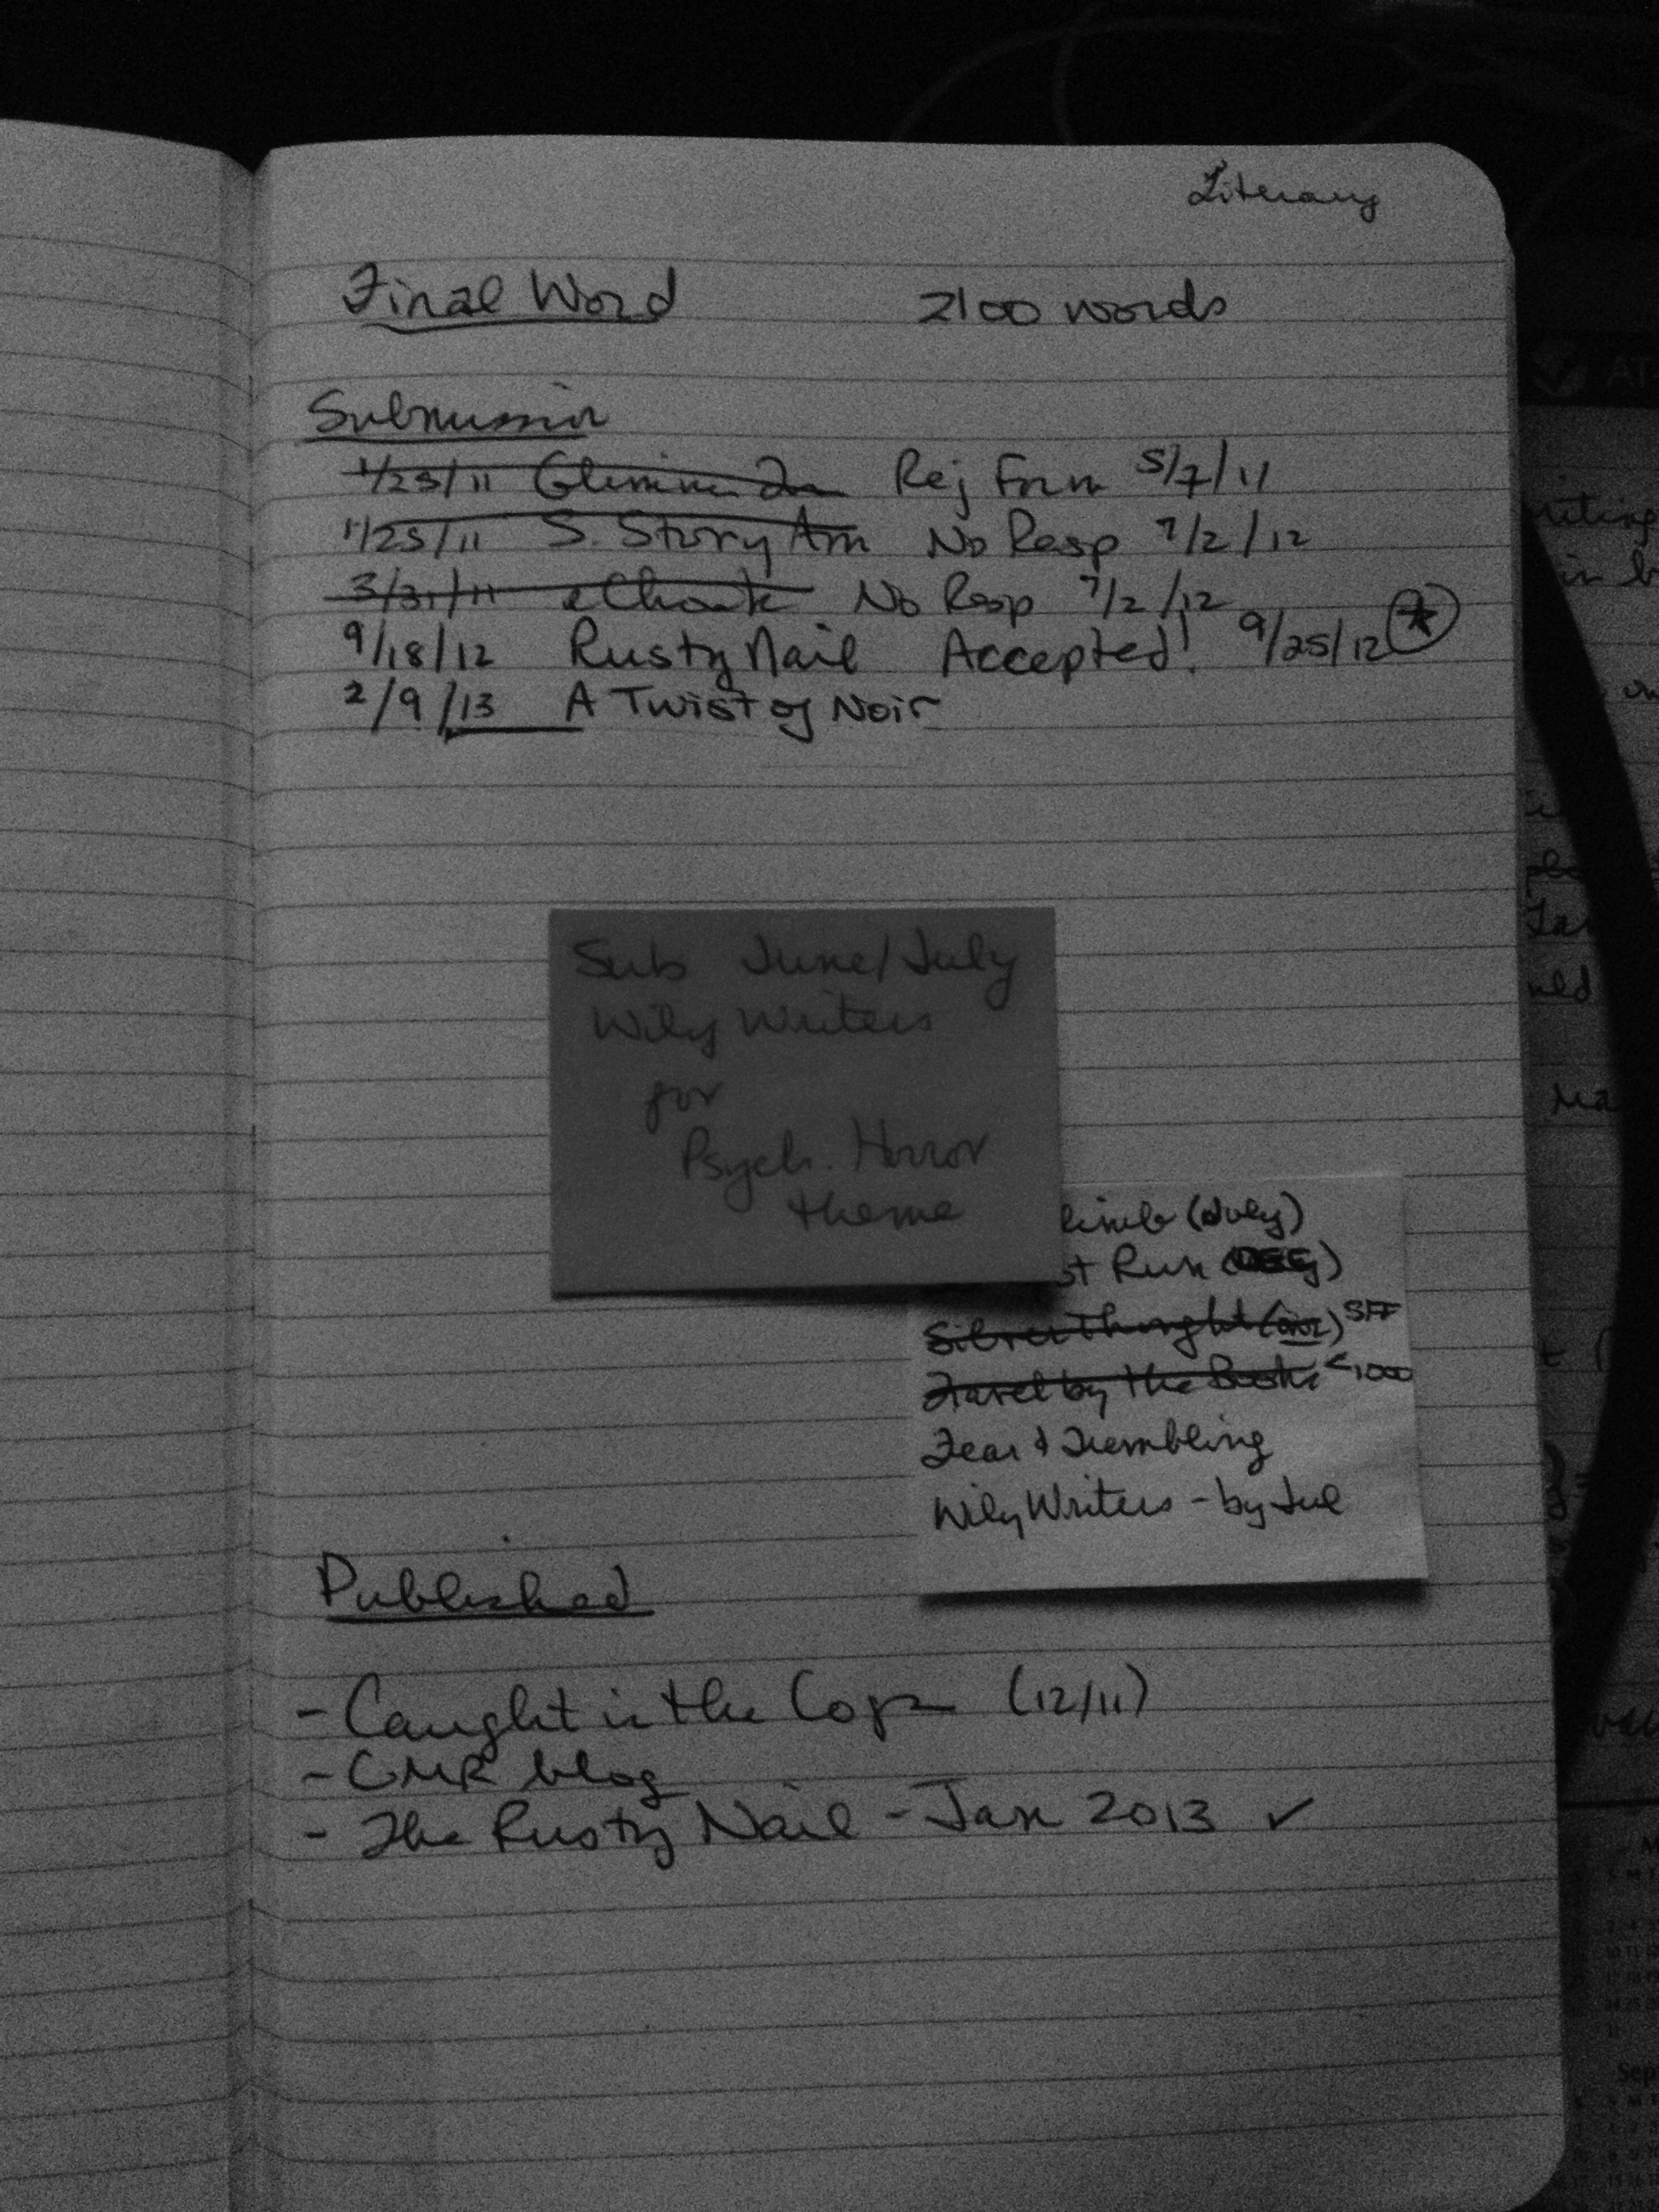 Literary
Final Word 2100 words
Submission
1/23/11 Glimmer Rej Form 5/7/11
1/25/11 S. Story Am No Resp 7/2/12
3/31/11 No Resp 7/2/12
9/18/12 Rusty Nail Accepted! 9/25/12 *
2/9/13 A Twist of Noir
Sub June/July
Wily Writers
for
Psych. Horror
theme
limb (July)
st Run
Silverthought SFF
Travel by the Books <1000
Fear & Trembling
Wily Writers - by Jul
Published
- Caught in the (12/11)
- CMR blog
- The Rusty Nail - Jan 2013 ✓